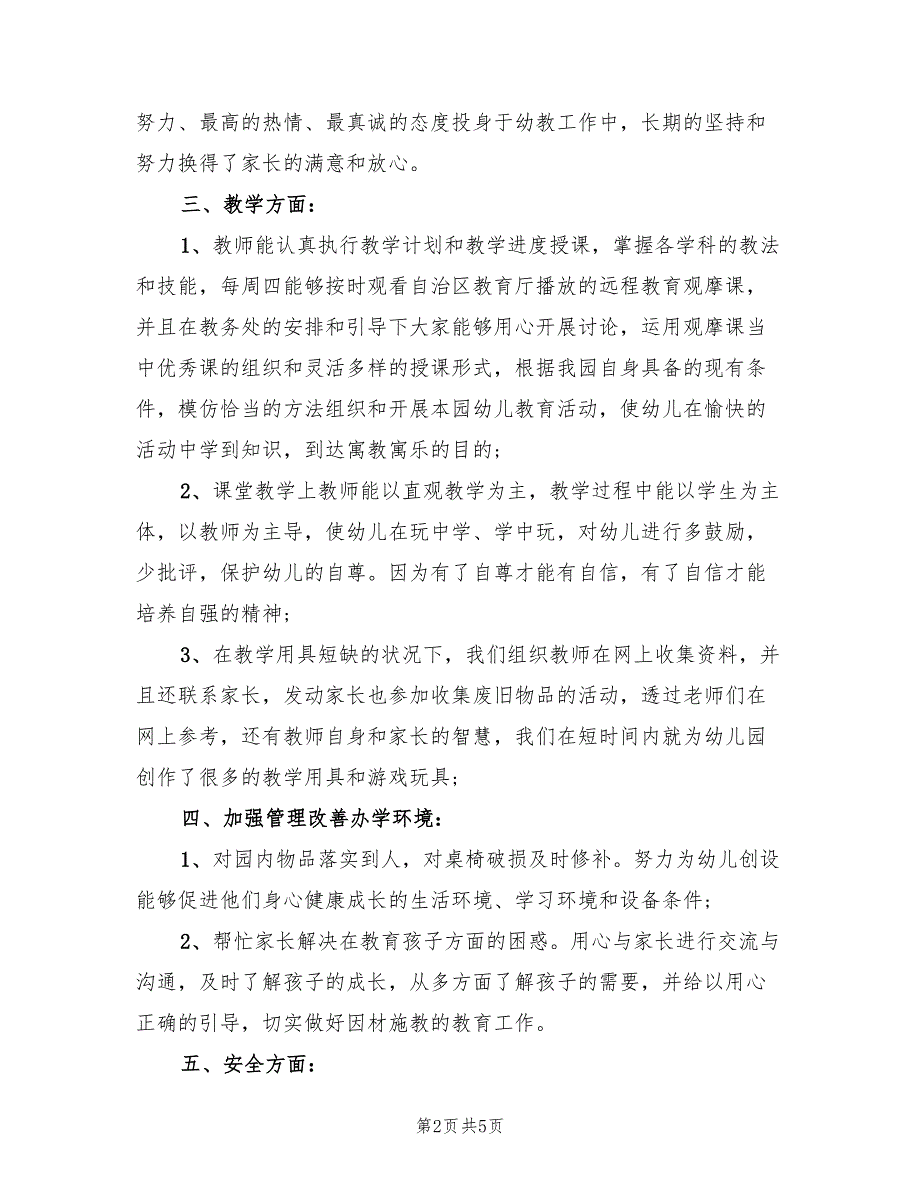 努力、最高的热情、最真诚的态度投身于幼教工作中，长期的坚持和
努力换得了家长的满意和放心。
三、教学方面：
1、教师能认真执行教学计划和教学进度授课，掌握各学科的教法
和技能，每周四能够按时观看自治区教育厅播放的远程教育观摩课，
并且在教务处的安排和引导下大家能够用心开展讨论，运用观摩课当
中优秀课的组织和灵活多样的授课形式，根据我园自身具备的现有条
件，模仿恰当的方法组织和开展本园幼儿教育活动，使幼儿在愉快的
活动中学到知识，到达寓教寓乐的目的;
2、课堂教学上教师能以直观教学为主，教学过程中能以学生为主
体，以教师为主导，使幼儿在玩中学、学中玩，对幼儿进行多鼓励，
少批评，保护幼儿的自尊。因为有了自尊才能有自信，有了自信才能
培养自强的精神;
3、在教学用具短缺的状况下，我们组织教师在网上收集资料，并
且还联系家长，发动家长也参加收集废旧物品的活动，透过老师们在
网上参考，还有教师自身和家长的智慧，我们在短时间内就为幼儿园
创作了很多的教学用具和游戏玩具;
四、加强管理改善办学环境：
1、对园内物品落实到人，对桌椅破损及时修补。努力为幼儿创设
能够促进他们身心健康成长的生活环境、学习环境和设备条件;
2、帮忙家长解决在教育孩子方面的困惑。用心与家长进行交流与
沟通，及时了解孩子的成长，从多方面了解孩子的需要，并给以用心
正确的引导，切实做好因材施教的教育工作。
五、安全方面：
第2页 共5页